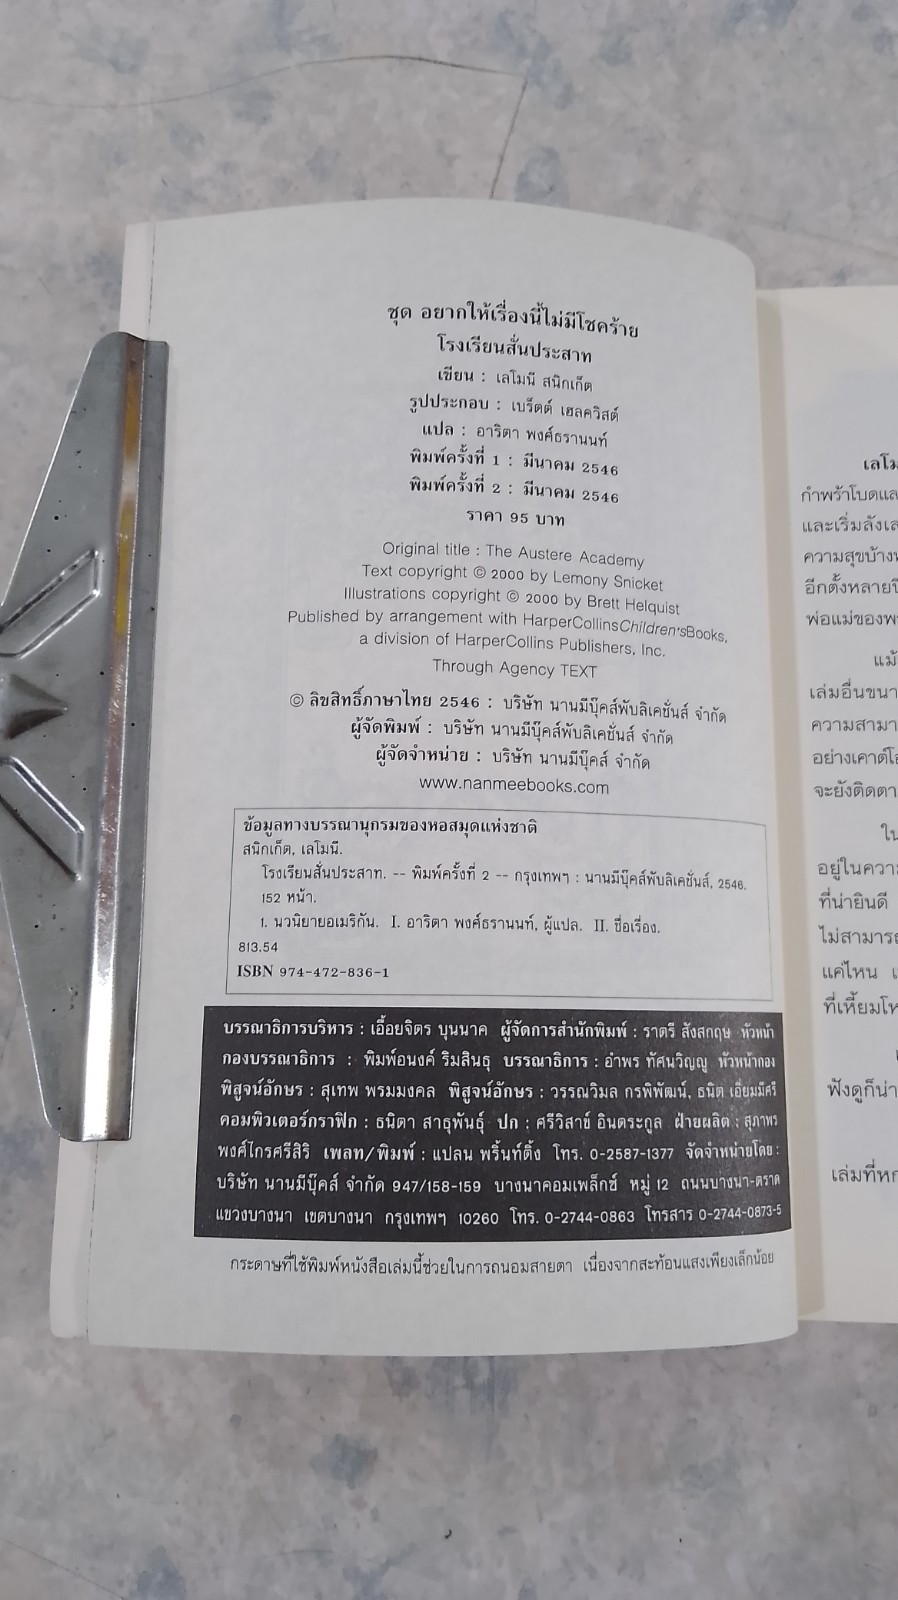 ชุด อยากให้เรื่องนี้ไม่มีโชคร้าย
โรงเรียนสั่นประสาท
เขียน : เลโมนี สนิกเก็ต
รูปประกอบ : เบร็ตต์ เฮลควิสต์
แปล : อาริตา พงศ์ธรานนท์
พิมพ์ครั้งที่ 1 : มีนาคม 2546
พิมพ์ครั้งที่ 2 : มีนาคม 2546
ราคา 95 บาท
Original title : The Austere Academy
Text copyright © 2000 by Lemony Snicket
Illustrations copyright © 2000 by Brett Helquist
Published by arrangement with HarperCollinsChildren'sBooks,
a division of HarperCollins Publishers, Inc.
Through Agency TEXT
© ลิขสิทธิ์ภาษาไทย 2546 : บริษัท นานมีบุ๊คส์พับลิเคชั่นส์ จำกัด
ผู้จัดพิมพ์ : บริษัท นานมีบุ๊คส์พับลิเคชั่นส์ จำกัด
ผู้จัดจำหน่าย : บริษัท นานมีบุ๊คส์ จำกัด
www.nanmeebooks.com
ข้อมูลทางบรรณานุกรมของหอสมุดแห่งชาติ
สนิกเก็ต, เลโมนี.
โรงเรียนสั่นประสาท. -- พิมพ์ครั้งที่ 2 -- กรุงเทพฯ : นานมีบุ๊คส์พับลิเคชั่นส์, 2546.
152 หน้า.
1. นวนิยายอเมริกัน. I. อาริตา พงศ์ธรานนท์, ผู้แปล. II. ชื่อเรื่อง.
813.54
ISBN 974-472-836-1
บรรณาธิการบริหาร : เอื้อยจิตร บุนนาค ผู้จัดการสำนักพิมพ์ : ราตรี สังสกฤษ หัวหน้า
กองบรรณาธิการ : พิมพ์อนงค์ ริมสินธุ บรรณาธิการ : อำพร ทัศนวิญญู หัวหน้ากอง
พิสูจน์อักษร : สุเทพ พรมมงคล พิสูจน์อักษร : วรรณวิมล กรพิพัฒน์, ธนิต เอี่ยมมีศรี
คอมพิวเตอร์กราฟิก : ธนิตา สาธุพันธุ์ ปก : ศรีวิสาข์ อินดระกูล ฝ่ายผลิต : สุภาพร
พงศ์ไกรศรีสิริ เพลท/พิมพ์ : แปลน พริ้นท์ติ้ง โทร. 0-2587-1377 จัดจำหน่ายโดย :
บริษัท นานมีบุ๊คส์ จำกัด 947/158-159 บางนาคอมเพล็กซ์ หมู่ 12 ถนนบางนา-ตราด
แขวงบางนา เขตบางนา กรุงเทพฯ 10260 โทร. 0-2744-0863 โทรสาร 0-2744-0873-5
กระดาษที่ใช้พิมพ์หนังสือเล่มนี้ช่วยในการถนอมสายตา เนื่องจากสะท้อนแสงเพียงเล็กน้อย
กำพร้าโบดแล
และเริ่มลังเล
ความสุขบ้าง
อีกตั้งหลายปี
พ่อแม่ของพ
แม้
เล่มอื่นขนา
ความสามา
อย่างเคาต์โอ
จะยังติดตา
ใน
อยู่ในความ
ที่น่ายินดี
ไม่สามารถ
แค่ไหน
ที่เหี้ยมโห
ฟังดูก็น่า
เล่มที่หก